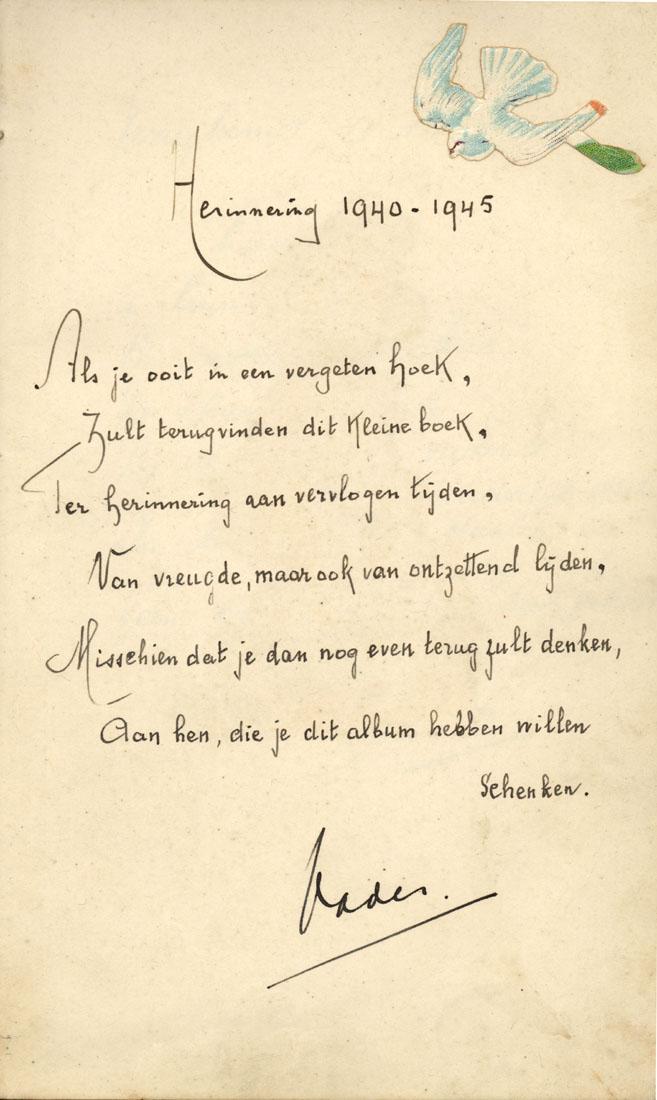 Herinnering 1940 - 1945
Als je ooit in een vergeten hoek,
Zult terugvinden dit kleine boek,
Ter herinnering aan vervlogen tijden,
Van vreugde, maar ook van ontzettend lijden,
Misschien dat je dan nog even terug zult denken,
Aan hen, die je dit album hebben willen
Schenken.
Vader.